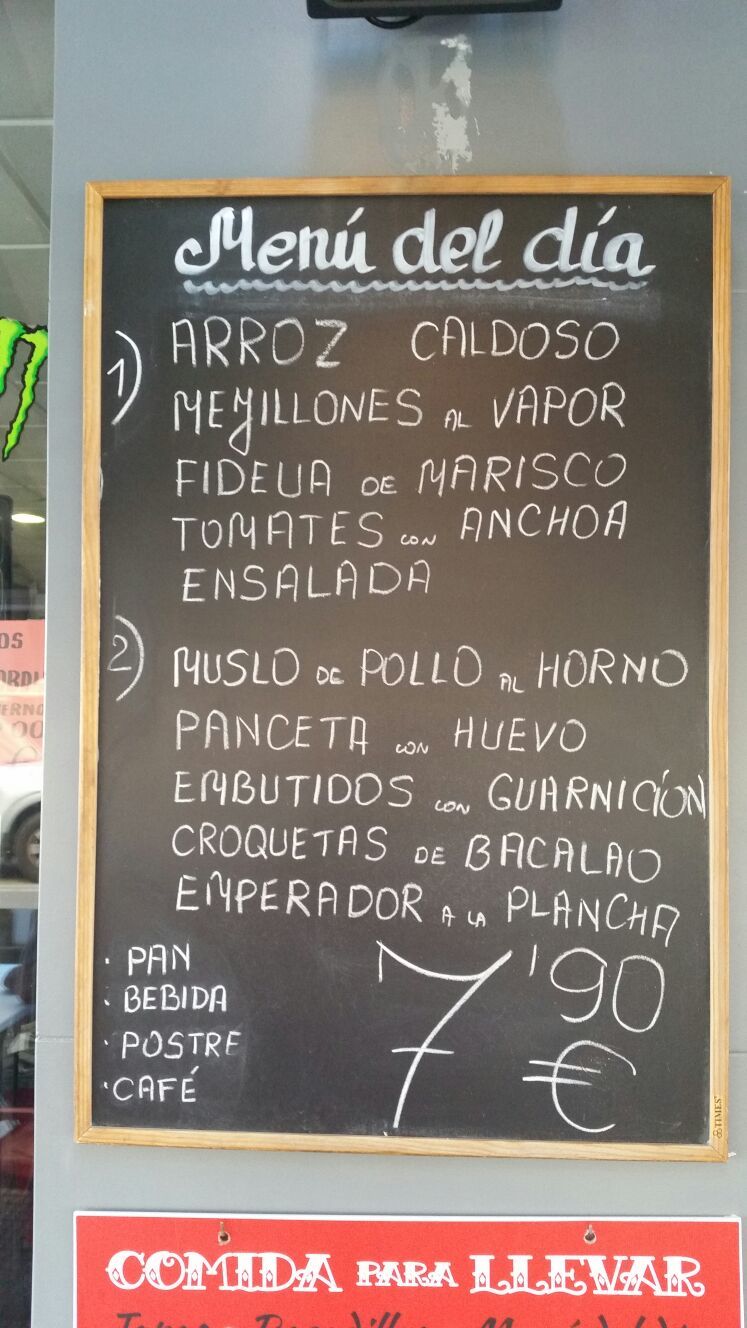 Menú del día
1) ARROZ CALDOSO
MEJILLONES AL VAPOR
FIDEUA DE MARISCO
TOMATES CON ANCHOA
ENSALADA
2) MUSLO DE POLLO AL HORNO
PANCETA CON HUEVO
EMBUTIDOS CON GUARNICÍON
CROQUETAS DE BACALAO
EMPERADOR A LA PLANCHA
· PAN
· BEBIDA
· POSTRE
· CAFÉ
7'90
€
TIMES
COMIDA PARA LLEVAR